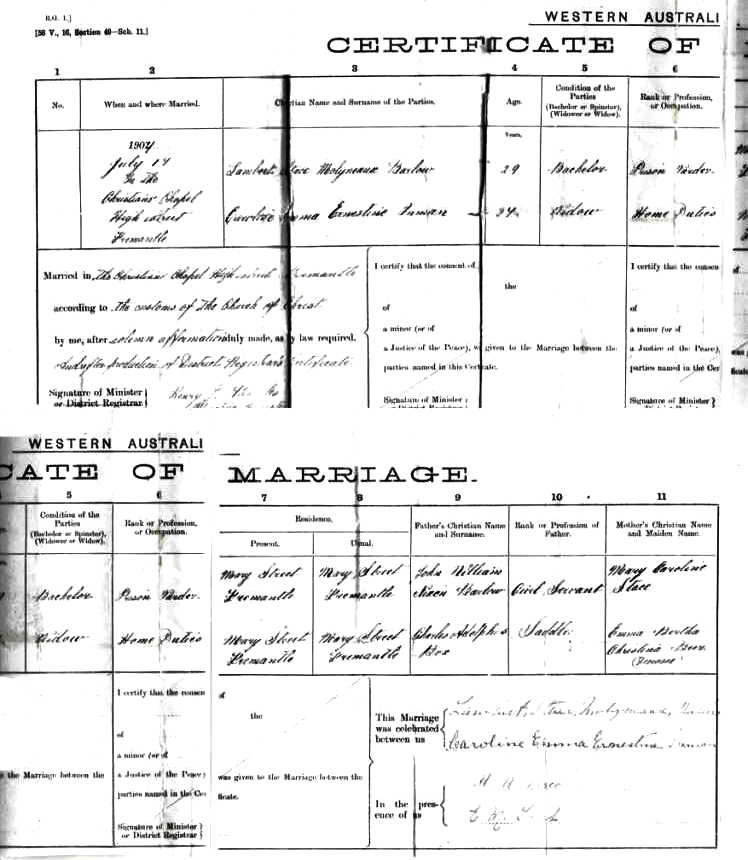 R.G. 1.]
WESTERN AUSTRALI
[58 V., 16, Section 40—Sch. 11.]
CERTIFICATE OF
1 2 3 4 5 6
No.
When and where Married.
Christian Name and Surname of the Parties.
Age.
Condition of the
Parties
(Bachelor or Spinster),
(Widower or Widow).
Rank or Profession,
or Occupation.
Years.
1904
July 14
In the
Christians Chapel
High street
Fremantle
Lambert Stace Molyneaux Barlow 29 Bachelor Prison Warder
Caroline Emma Ernestine Inman 24 Widow Home Duties
Married in The Christians Chapel High street Fremantle
according to the customs of The Church of Christ
by me, after solemn affirmation duly made, as by law required,
And after production of District Registrar's Certificate
Signature of Minister
or District Registrar
Henry
I certify that the consent of
the
of
a minor (or of
a Justice of the Peace), was given to the Marriage between the
parties named in this Certificate.
Signature of Minister
I certify that the consen
of
a minor (or of
a Justice of the Peace),
parties named in the Cer
Signature of Minister
was
ficate
WESTERN AUSTRALI
CATE OF MARRIAGE.
5 6 7 8 9 10 11
Condition of the
Parties
(Bachelor or Spinster),
(Widower or Widow).
Rank or Profession,
or Occupation.
Residence.
Present. Usual.
Father's Christian Name
and Surname.
Rank or Profession of
Father.
Mother's Christian Name
and Maiden Name.
Bachelor Prison Warder
Mary Street
Fremantle
Mary Street
Fremantle
John William
Nixon Barlow
Civil Servant
Mary Caroline
Stace
Widow Home Duties
Mary Street
Fremantle
Mary Street
Fremantle
Charles Adolphus
Box
Saddler
Emma Bertha
Christina
(Deceased)
I certify that the consen
of
a minor (or of
the Marriage between the
a Justice of the Peace)
parties named in the Cer
Signature of Minister
or District Registrar
of
the
was given to the Marriage between the
ficate.
This Marriage
was celebrated
between us
Lambert Stace Molyneaux
Caroline Emma Ernestine Inman
In the pres-
ence of us